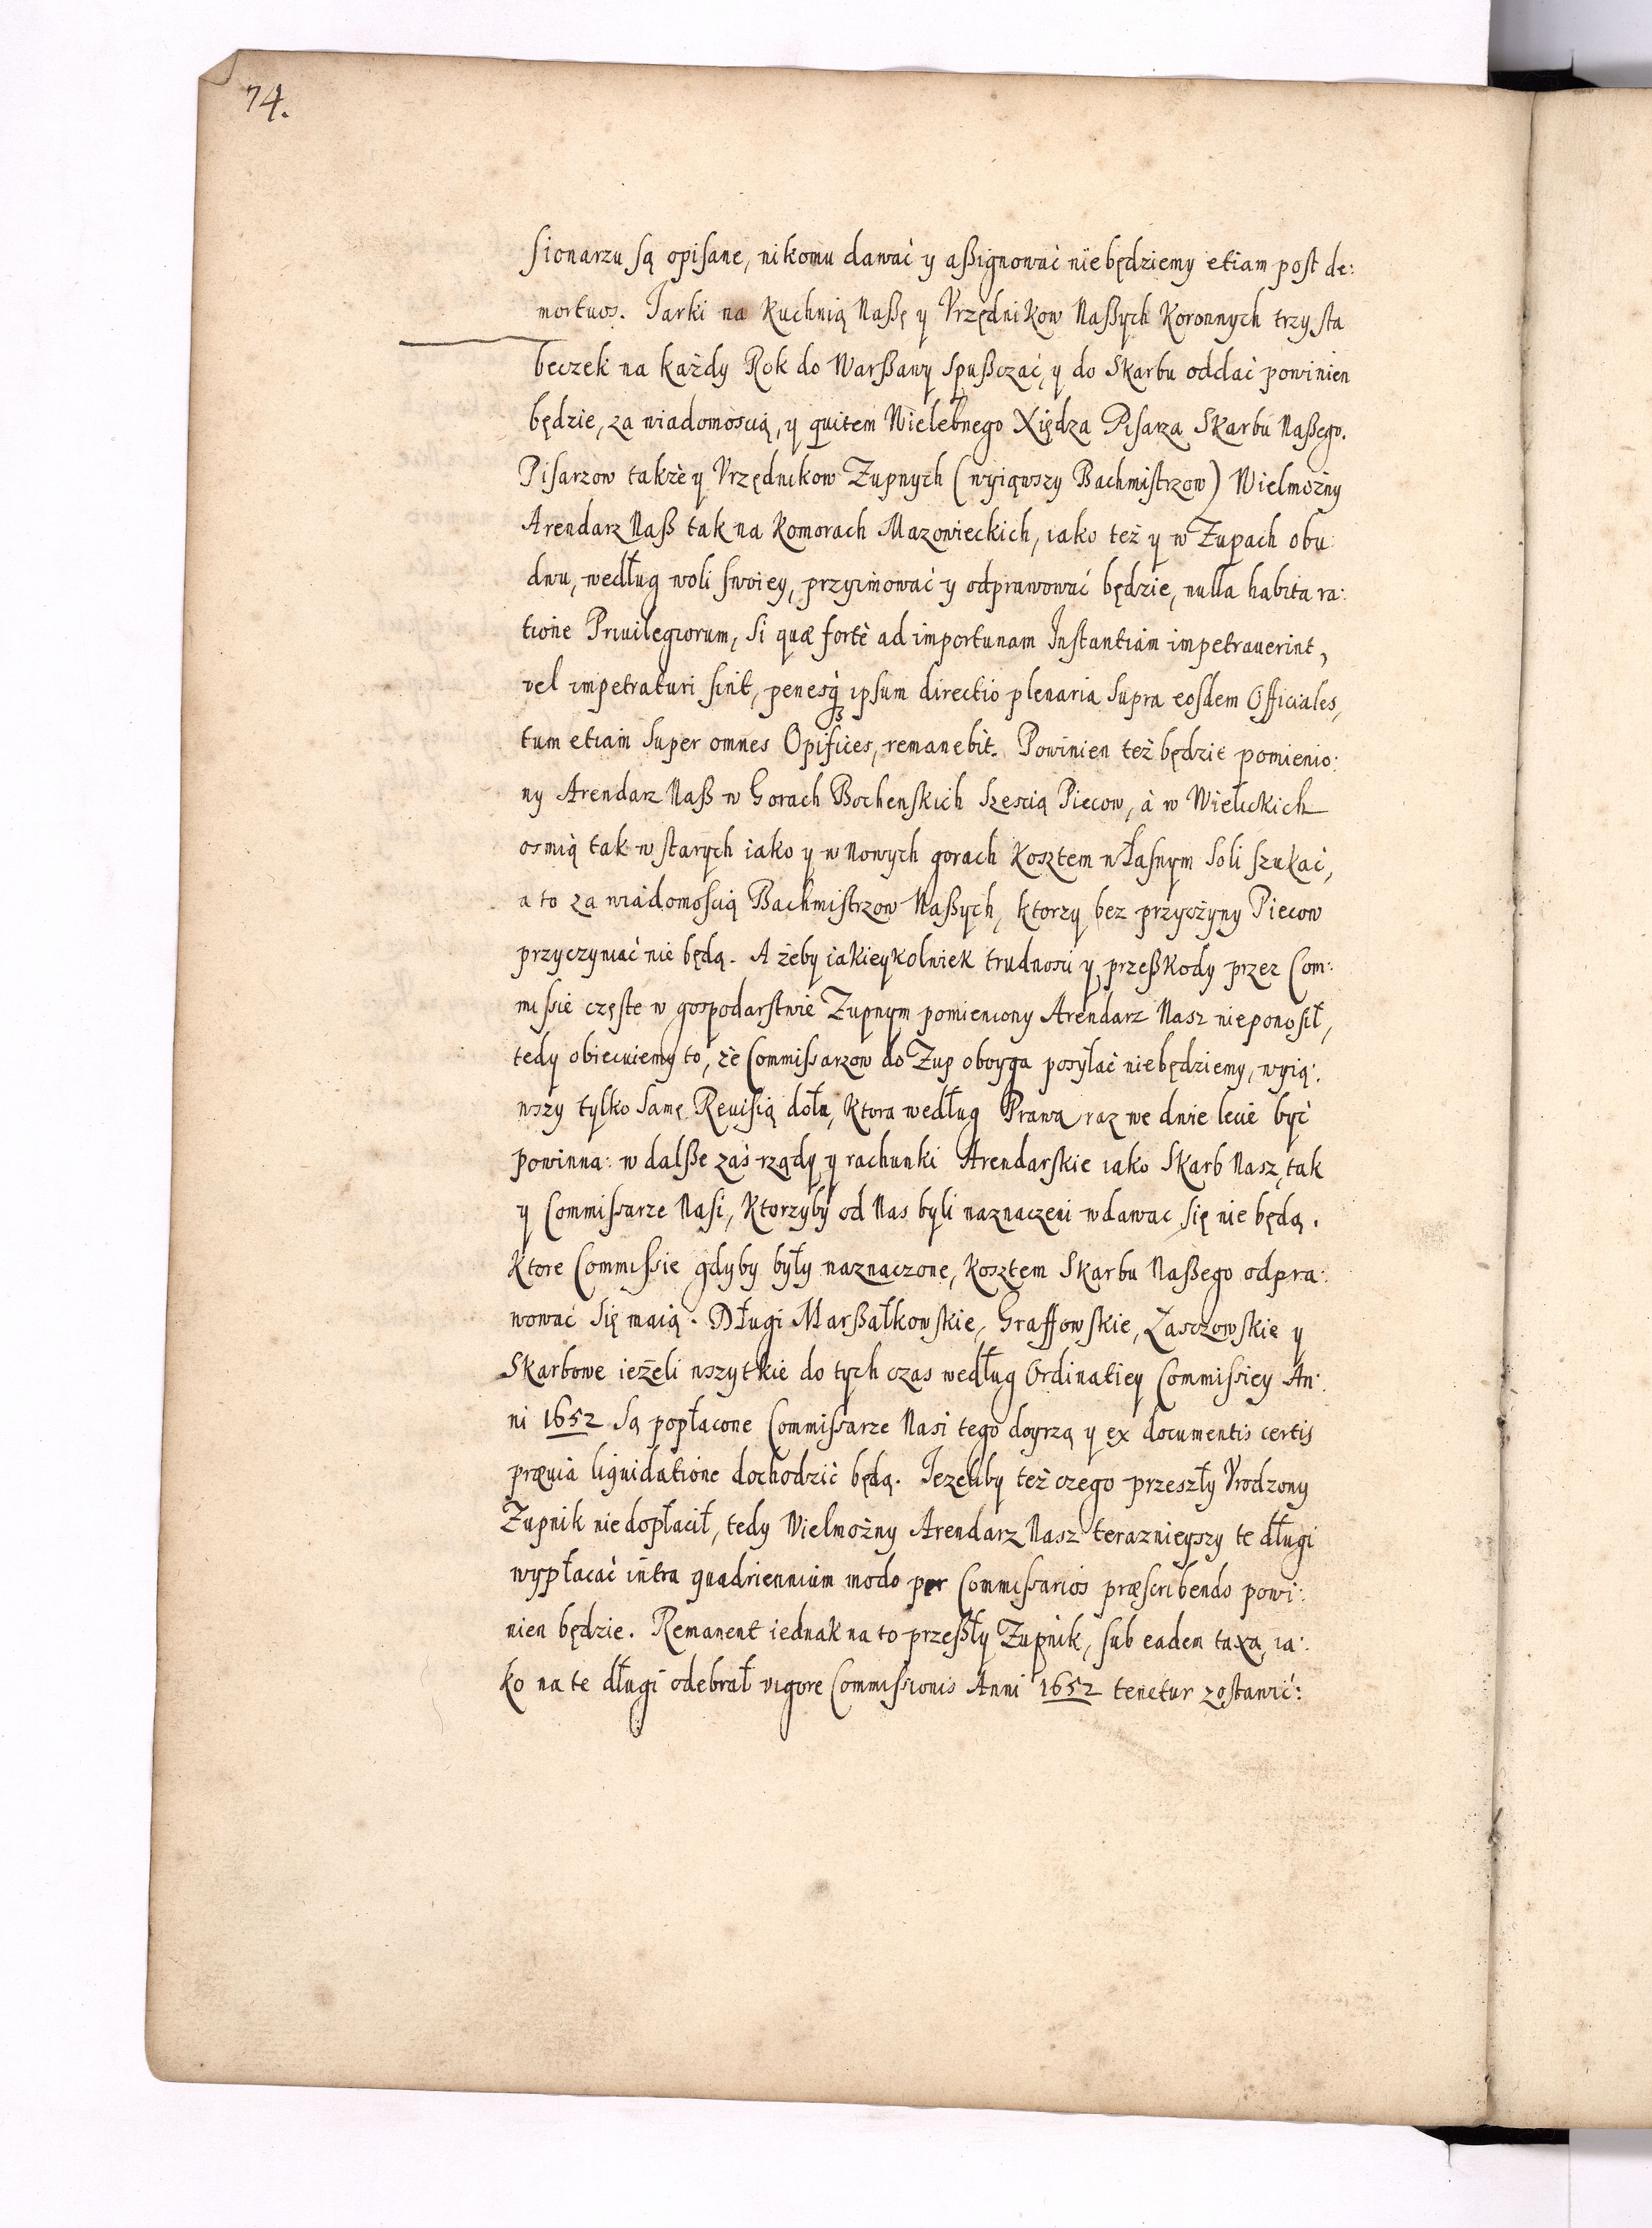 74.
sionarzu są opisane, nikomu dawać y aßignować niebędziemy etiam post de:
mortuos. Jarki na Kuchnią Naßę y Vrzędnikow Naßych Koronnych trzysta
beczek na każdy Rok do Warßawy spußczać, y do Skarbu oddać powinien
będzie, za wiadomoscią, y quitem Wielebnego Xiędza Pisarza Skarbu Naßego.
Pisarzow także y Vrzędnikow Zupnych (wyiąwszy Bachmistrzow) Wielmożny
Arendarz Naß tak na Komorach Mazowieckich, iako też y w Zupach obu:
dwu, według woli swoiey, przyimować y odprawować będzie, nulla habita ra:
tione Priuilegiorum, si quæ fortè ad importunam Instantiam impetrauerint,
vel impetraturi sint, penesq́ ipsum directio plenaria supra eosdem Officiales,
tum etiam super omnes Opifices, remanebit. Powinien też będzie pomienio:
ny Arendarz Naß w Gorach Bochenskich szescią Piecow, à w Wielickich
osmią tak w starych iako y w Nowych gorach kosztem własnym soli szukać,
a to za wiadomoscią Bachmistrzow Naßych, ktorzy bez przyczyny Piecow
przyczyniać nie będą. A żeby iakieykolwiek trudnosci y przeßkody przez Com:
missie częste w gospodarstwie Zupnym pomieniony Arendarz Nasz nieponosił,
tedy obiecuiemy to, że Commissarzow do Zup oboyga posyłać niebędziemy, wyią:
wszy tylko samę Reuisią dołu, ktora według Prawa raz we dwie lecie być
powinna: w dalße zaś rządy y rachunki Arendarskie iako Skarb Nasz, tak
y Commissarze Nasi, ktorzyby od Nas byli naznaczeni wdawac się nie będą.
Ktore Commissie gdyby były naznaczone, kosztem Skarbu Naßego odpra:
wować się maią. Długi Marßałkowskie, Graffowskie, Zasczowskie y
Skarbowe ieżeli wszytkie do tych czas według Ordinatiey Commissiey An:
ni 1652 są popłacone Commissarze Nasi tego doyrzą y ex documentis certis
præuia liquidatione dochodzić będą. Jezeliby też czego przeszły Vrodzony
Zupnik niedopłacił, tedy Wielmożny Arendarz Nasz teraznieyszy te długi
wypłacać intra quadriennium modo per Commissarios præscribendo powi:
nien będzie. Remanent iednak na to przeßły Zupnik, sub eadem taxa, ia:
ko na te długi odebrał vigore Commissionis Anni 1652 tenetur zostawić: